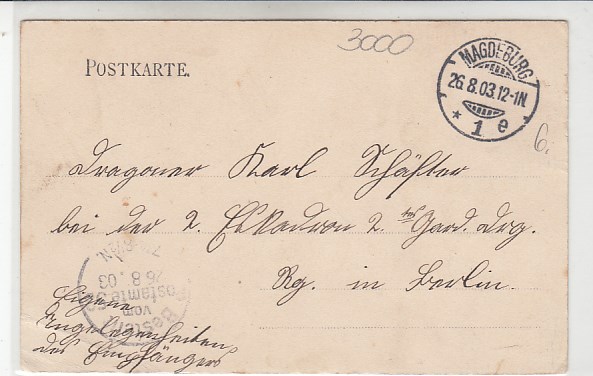 3000
POSTKARTE.
MAGDEBURG
26.8.03.12-1N.
* 1 e
6.
Dragoner Karl Schäfter
bei der 2. Eskadron 2. tes Gard. Drg.
Rg. in Berlin.
Bestellt
vom
Postamte
26.8.03
N.
Eigene
Angelegenheiten
des Empfängers